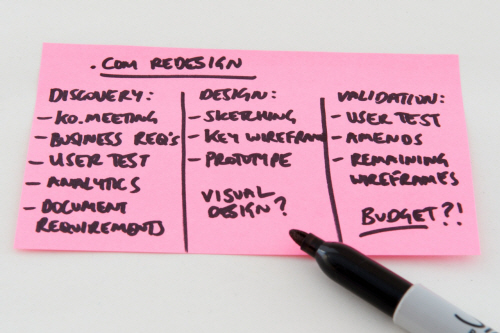 .COM REDESIGN
DISCOVERY:
- KO.MEETING
- BUSINESS REQ'S
- USER TEST
- ANALYTICS
- DOCUMENT
REQUIREMENTS
DESIGN:
- SKETCHING
- KEY WIREFRAM
- PROTOTYPE
VISUAL
DESIGN?
VALIDATION:
- USER TEST
- AMENDS
- REMAINING
WIREFRAMES
BUDGET?!